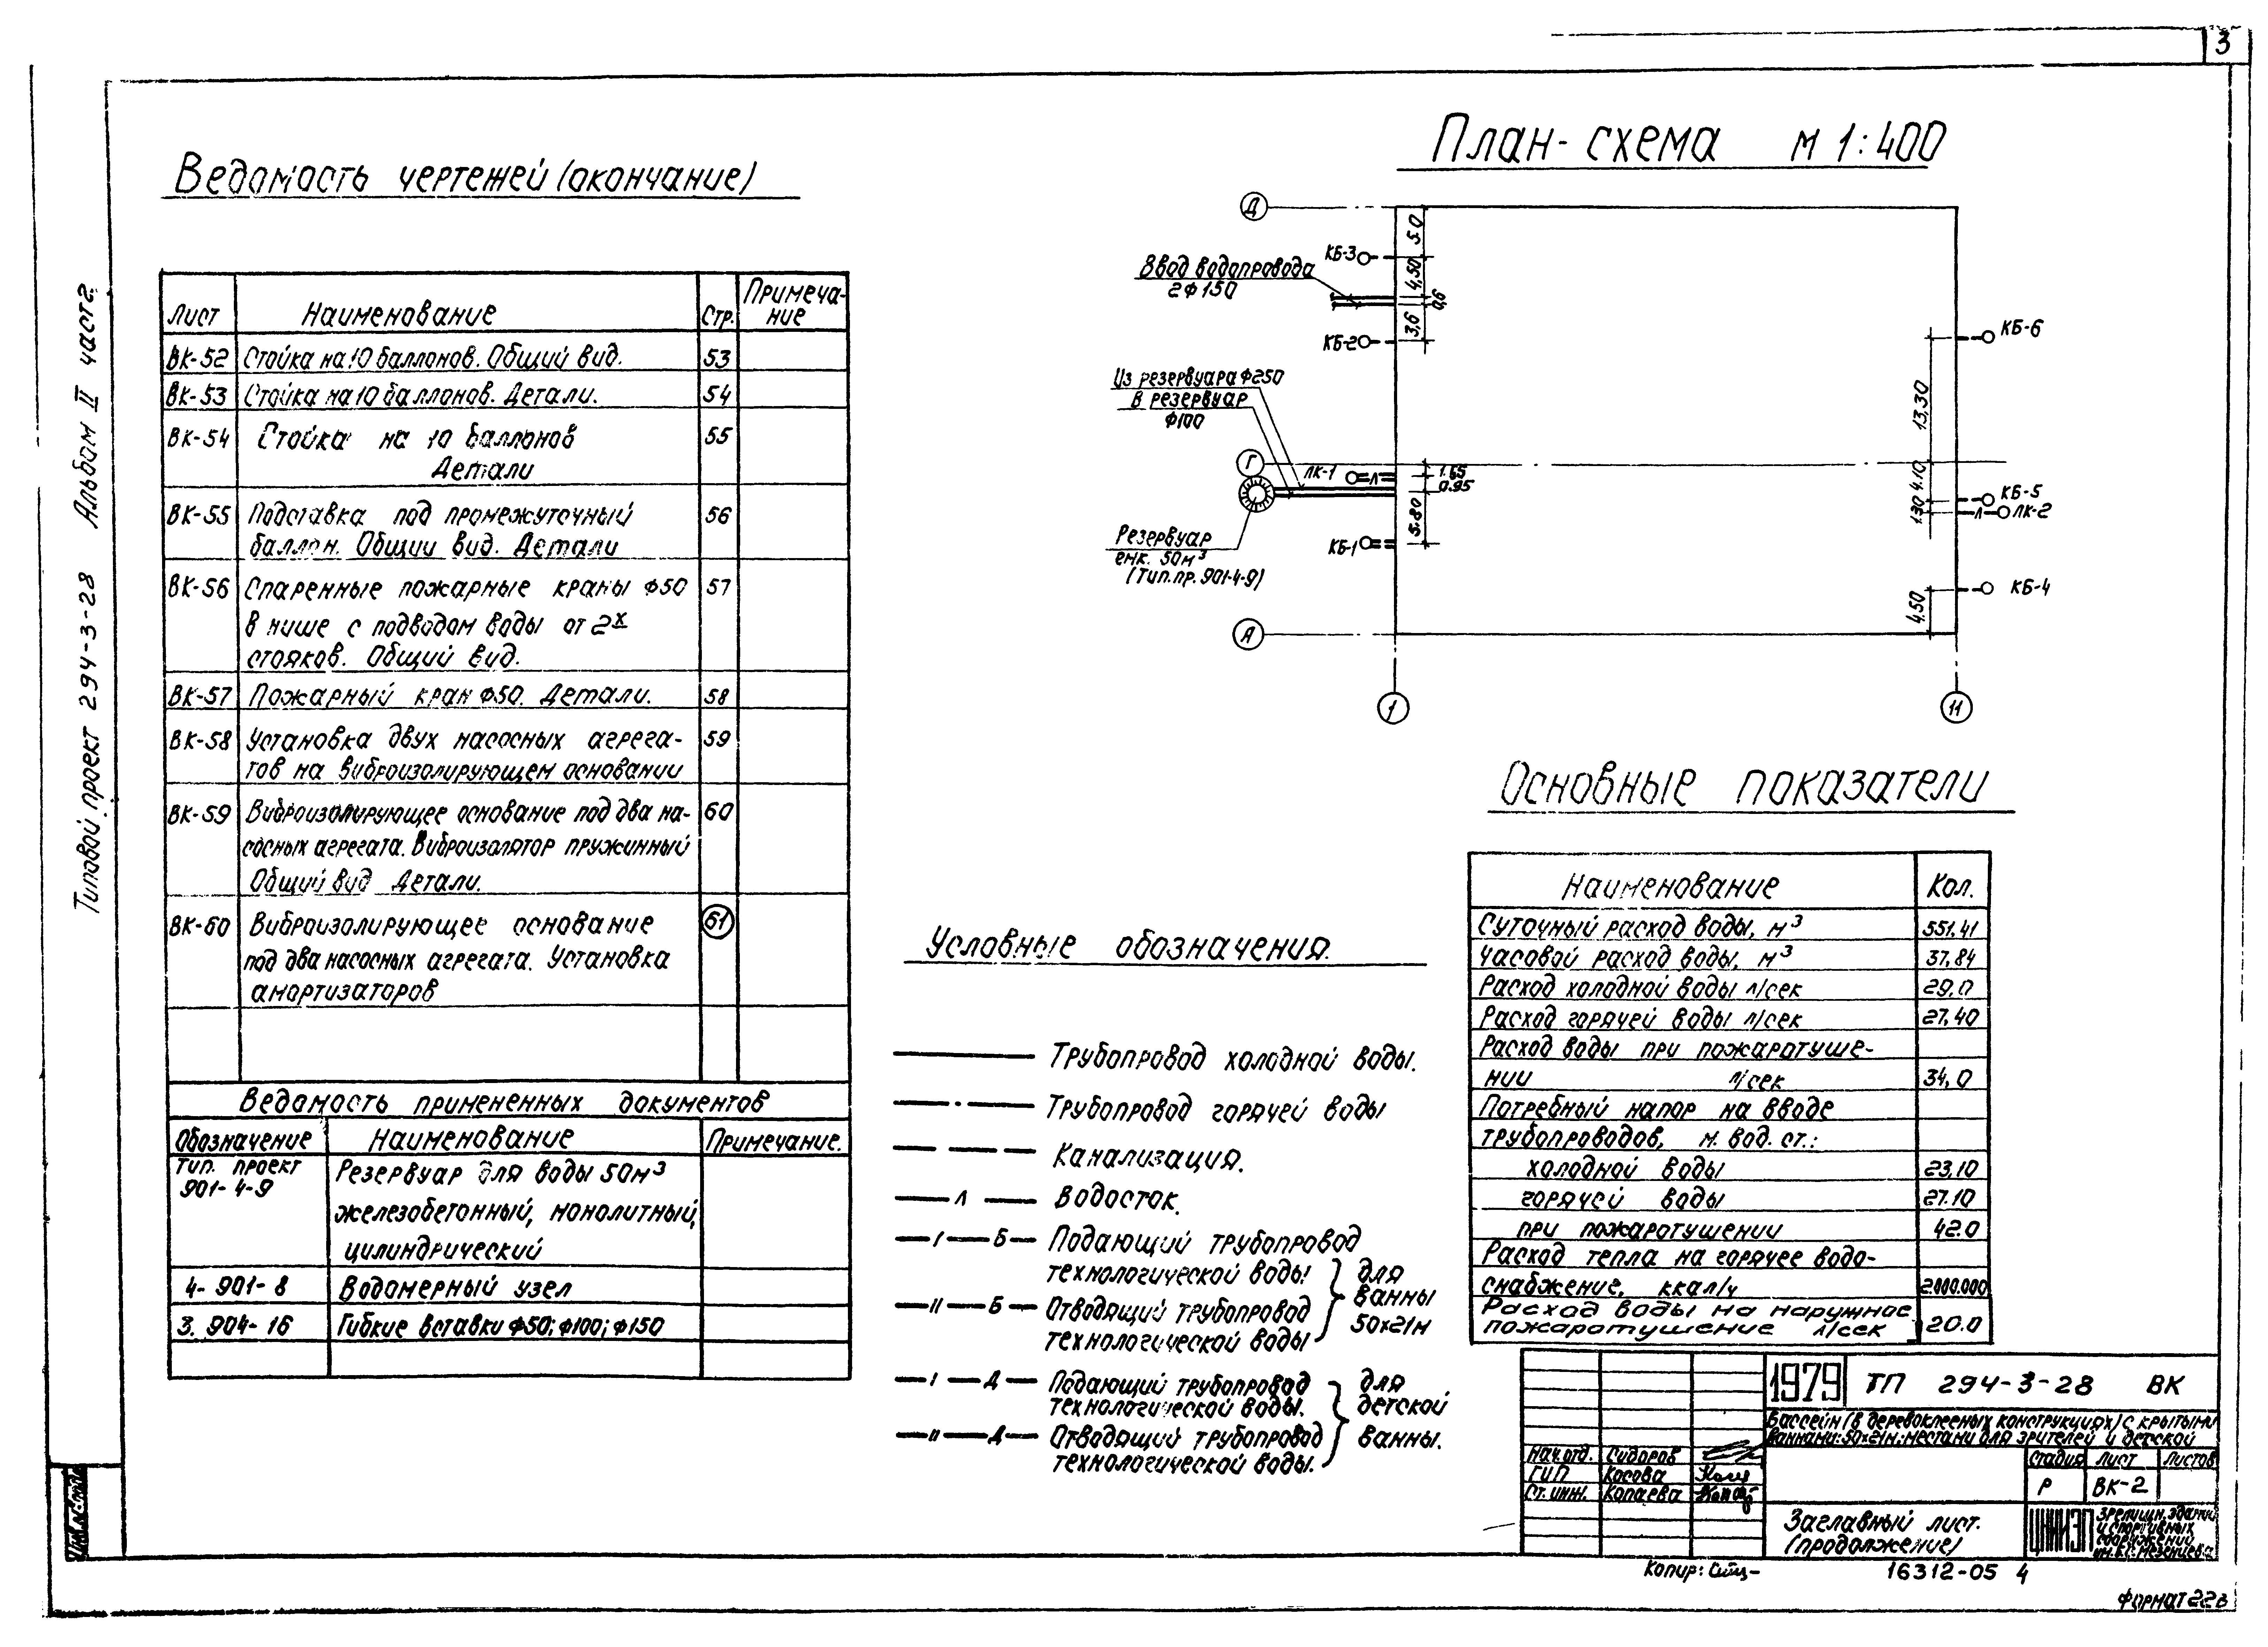 3
Типовой проект 294-3-28 Альбом II часть 2.
Ведомость чертежей (окончание)
Лист Наименование Стр. Примеча-
ние
ВК-52 Стойка на 10 баллонов. Общий вид. 53
ВК-53 Стойка на 10 баллонов. Детали. 54
ВК-54 Стойка на 10 баллонов 55
Детали
ВК-55 Подставка под промежуточный 56
баллон. Общий вид. Детали
ВК-56 Спаренные пожарные краны ф50 57
в нише с подводом воды от 2х
стояков. Общий вид.
ВК-57 Пожарный кран ф50. Детали. 58
ВК-58 Установка двух насосных агрега- 59
тов на виброизолирующем основании
ВК-59 Виброизолирующее основание под два на- 60
сосных агрегата. Виброизолятор пружинный
Общий вид Детали.
ВК-60 Виброизолирующее основание 61
под два насосных агрегата. Установка
амортизаторов
Ведомость примененных документов
Обозначение Наименование Примечание.
Тип. проект Резервуар для воды 50м³
901-4-9
железобетонный, монолитный,
цилиндрический
4-901-8 Водомерный узел
3.904-16 Гибкие вставки ф50; ф100; ф150
План-схема м 1:400
Д
КБ-3
5.0
Ввод водопровода
2ф150
4,50
0,6
3,6
КБ-2
КБ-6
Из резервуара ф250
В резервуар
ф100
13,30
Г
ЛК-1
Л
1.65
0.95
4.10
КБ-5
1.30
Л
ЛК-2
Резервуар
емк. 50м³
(Тип.пр. 901-4-9)
КБ-1
5.80
КБ-4
4.50
А
1
11
Условные обозначения.
Трубопровод холодной воды.
Трубопровод горячей воды
Канализация.
Л Водосток.
I Б Подающий трубопровод
технологической воды для
ванны
II Б Отводящий трубопровод 50х21м
технологической воды
I Д Подающий трубопровод для
технологической воды. детской
II Д Отводящий трубопровод ванны.
технологической воды.
Основные показатели
Наименование Кол.
Суточный расход воды, м³ 551,41
Часовой расход воды, м³ 37,84
Расход холодной воды л/сек 29,0
Расход горячей воды л/сек 27,40
Расход воды при пожаротуше-
нии л/сек 34,0
Потребный напор на вводе
трубопроводов, м. вод. ст.:
холодной воды 23,10
горячей воды 27.10
при пожаротушении 42.0
Расход тепла на горячее водо-
снабжение, ккал/ч 2.800.000
Расход воды на наружное
пожаротушение л/сек 20.0
1979 ТП 294-3-28 ВК
Бассейн (в деревоклееных конструкциях) с крытыми
ваннами: 50х21м; местами для зрителей и детской
Нач.отд. Сидоров
ГИП Косова
Ст. инж. Копаева
Стадия Лист Листов
Р ВК-2
Заглавный лист.
(продолжение)
ЦНИИЭП
зрелищн. зданий
и спортивных
сооружений
им. Б.С. Мезенцева
Копир:
16312-05 4
Формат 22в